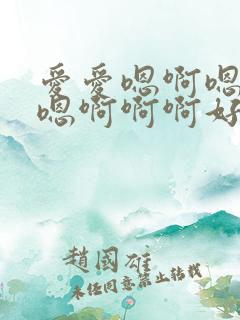 爱爱嗯啊嗯
嗯啊啊啊好
趙國雄
未经同意禁止转载